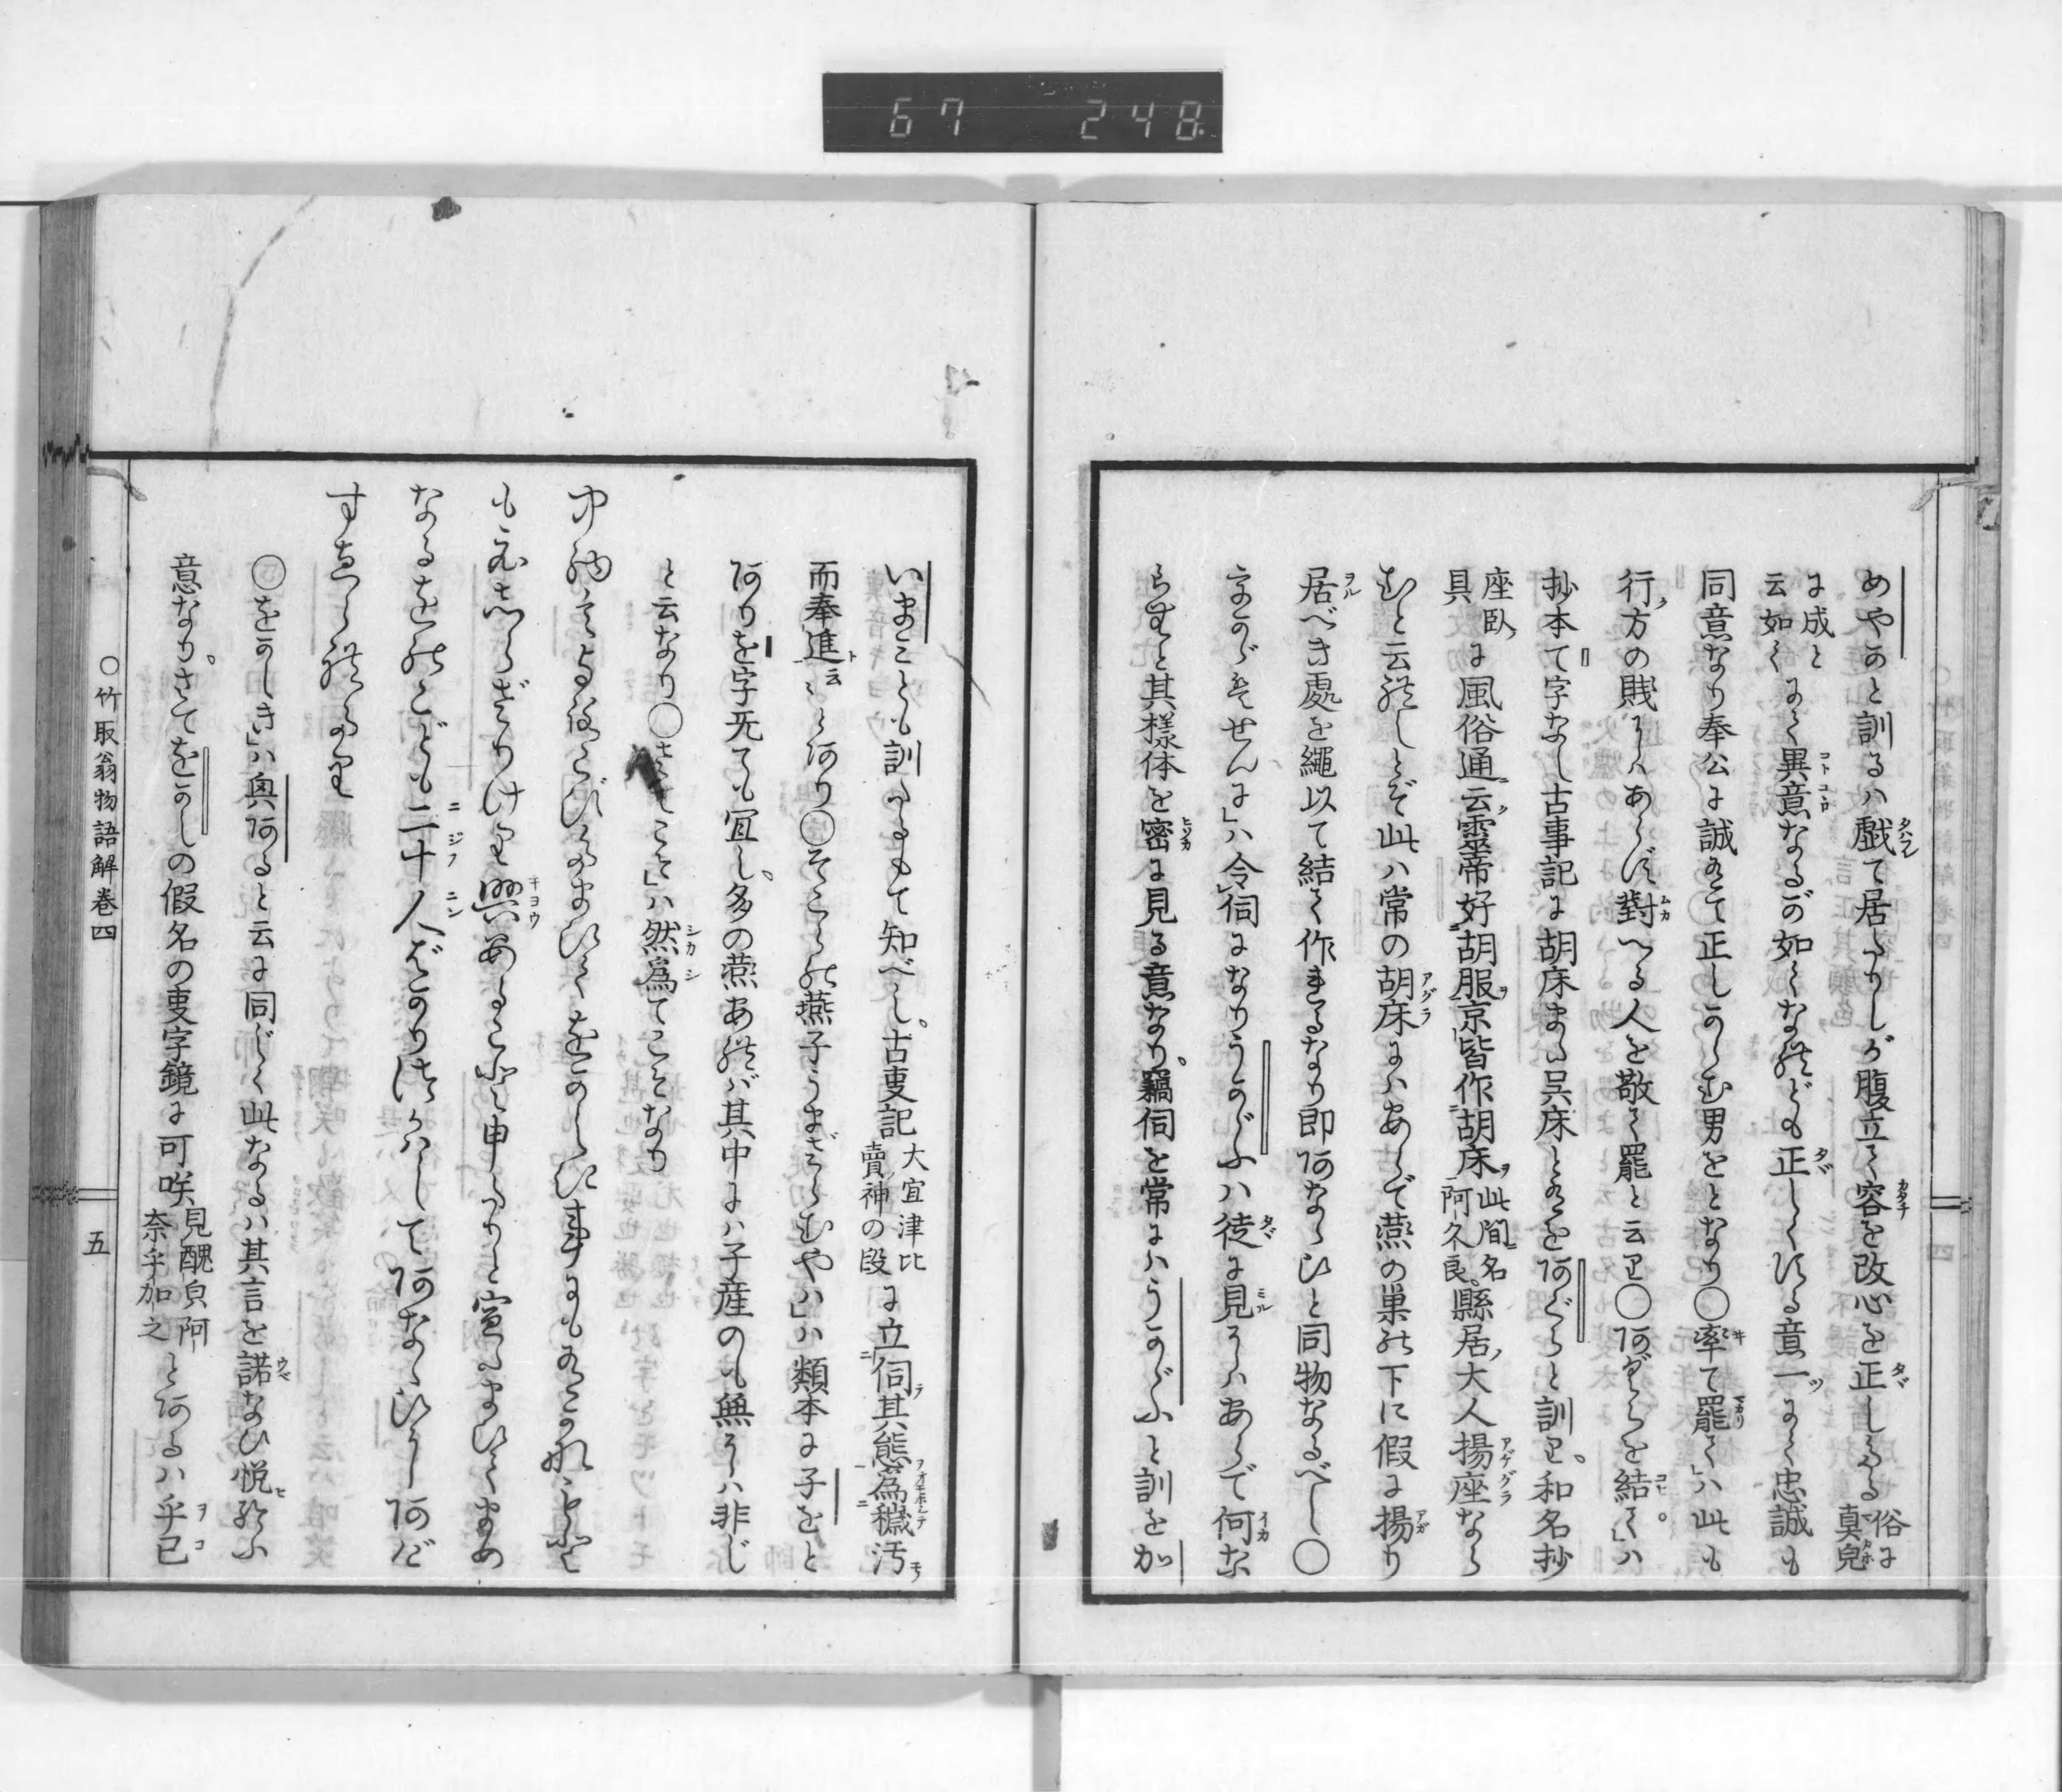 67 248
めやかと訓るハ戯て居たりしが腹立て容を改心を正しくする俗に真皃
に成と云如くにて異意なるが如くなれども正しくする意一ツにて忠誠も
同意なり奉公に誠有て正しからむ男をとなり〇率て罷て」ハ此も
行方の賎にハあらず對へる人を敬て罷と云リ〇阿ぐらを結て」ハ
抄本て字なし古事記に胡床また呉床と有を阿ぐらと訓リ。和名抄
座臥具に風俗通云靈帝好胡服京皆作胡床此間名阿久良。縣居大人揚座なら
むと云れしとぞ此ハ常の胡床にハあらで燕の巣の下に假に揚り
居べき處を繩以て結て作れるなり即阿なゝひと同物なるべし〇
うかゞはせんに」ハ令伺になりうかゞふハ徒に見るにハあらで何な
らむと其様体を密に見る意なり。竊伺を常にハうかゞふと訓をか
いまことも訓たるもて知べし。古事記大宜津比賣神の段に立伺其態爲穢汚
而奉進云〻と阿り〇そこらの燕子うまざらむやハ」ハ類本に子をと
阿りを字无ても宜し。多の燕あれバ其中にハ子産のも無にハ非じ
と云なり〇さてこそ」ハ然爲てこそなり
中納言よろこびたまひてをかしき事にも有かなもつとも
もえしらざりけり興あること申たりと宣たまひてまめ
なるをのこども二十人ばかりつかハして阿なゝひにあげ
すゑられたり
〇をかしき」ハ興阿ると云に同じく此なるハ其言を諾なひ悦給ふ
意なり。さてをかしの假名の事字鏡に可咲見醜皃阿奈乎加之と阿るハ乎己
〇竹取翁物語解卷四
五